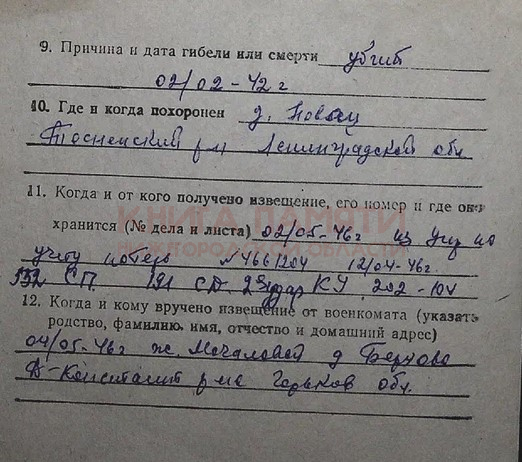 9. Причина и дата гибели или смерти убит
02/02-42 г
10. Где и когда похоронен д. Новы
Тосненский р-н Ленинградской обл
11. Когда и от кого получено извещение, его номер и где он
хранится (№ дела и листа) 02/05-46г из Упр по
учету потерь N4661204 12/04-46г.
532 СП 191 СД 2 Удар КУ 202-
12. Когда и кому вручено извещение от военкомата (указать
родство, фамилию, имя, отчество и домашний адрес)
04/05-46г ж. Мочаловой д
Д-Константин р-на Горьков обл.
КНИГА ПАМЯТИ
НИЖЕГОРОДСКОЙ ОБЛАСТИ